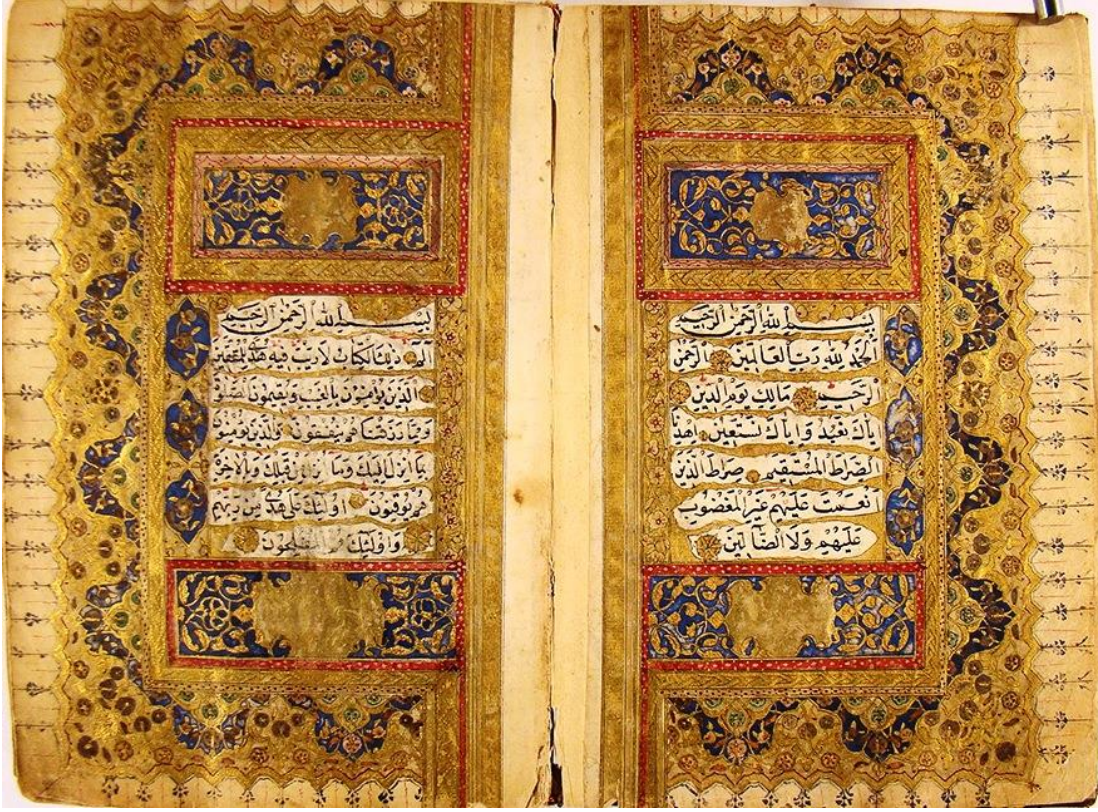 بِسْمِ اللهِ الرَّحْمٰنِ الرَّحِيمِ
اَلْحَمْدُ لِلّٰهِ رَبِّ الْعَالَمِينَ الرَّحْمٰنِ
الرَّحِيمِ مَالِكِ يَوْمِ الدِّينِ
اِيَّاكَ نَعْبُدُ وَاِيَّاكَ نَسْتَعِينُ اِهْدِنَا
الصِّرَاطَ الْمُسْتَقِيمَ صِرَاطَ الَّذِينَ
اَنْعَمْتَ عَلَيْهِمْ غَيْرِ الْمَغْضُوبِ
عَلَيْهِمْ وَلَا الضَّالِّينَ
بِسْمِ اللهِ الرَّحْمٰنِ الرَّحِيمِ
الٓمٓ ذٰلِكَ الْكِتَابُ لَا رَيْبَ فِيهِ هُدًى لِلْمُتَّقِينَ
الَّذِينَ يُؤْمِنُونَ بِالْغَيْبِ وَيُقِيمُونَ الصَّلٰوةَ
وَمِمَّا رَزَقْنَاهُمْ يُنْفِقُونَ وَالَّذِينَ يُؤْمِنُونَ
بِمَا اُنْزِلَ اِلَيْكَ وَمَا اُنْزِلَ مِنْ قَبْلِكَ وَبِالْاٰخِرَةِ
هُمْ يُوقِنُونَ اُولٰئِكَ عَلٰى هُدًى مِنْ رَبِّهِمْ
وَاُولٰئِكَ هُمُ الْمُفْلِحُونَ